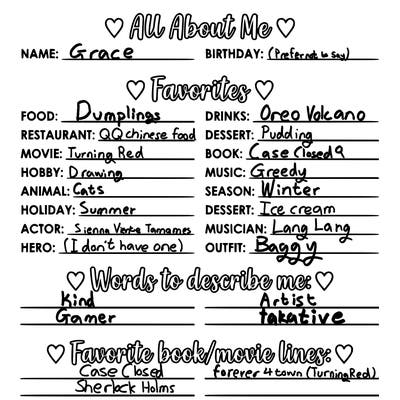 ♡ All About Me ♡
NAME: Grace BIRTHDAY: (Prefer not to say)
♡ Favorites ♡
FOOD: Dumplings DRINKS: Oreo Volcano
RESTAURANT: QQ chinese food DESSERT: Pudding
MOVIE: Turning Red BOOK: Case Closed 9
HOBBY: Drawing MUSIC: Greedy
ANIMAL: Cats SEASON: Winter
HOLIDAY: Summer DESSERT: Ice cream
ACTOR: Sienna Verta Tamames MUSICIAN: Lang Lang
HERO: (I don't have one) OUTFIT: Baggy
♡ Words to describe me: ♡
Kind Artist
Gamer takative
♡ Favorite book/movie lines: ♡
Case Closed forever 4 town (Turning Red)
Sherlock Holms